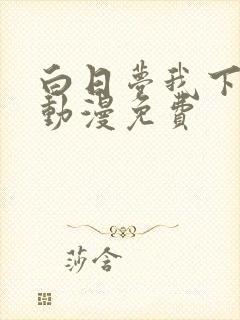 白日夢我下
動漫免費
莎含